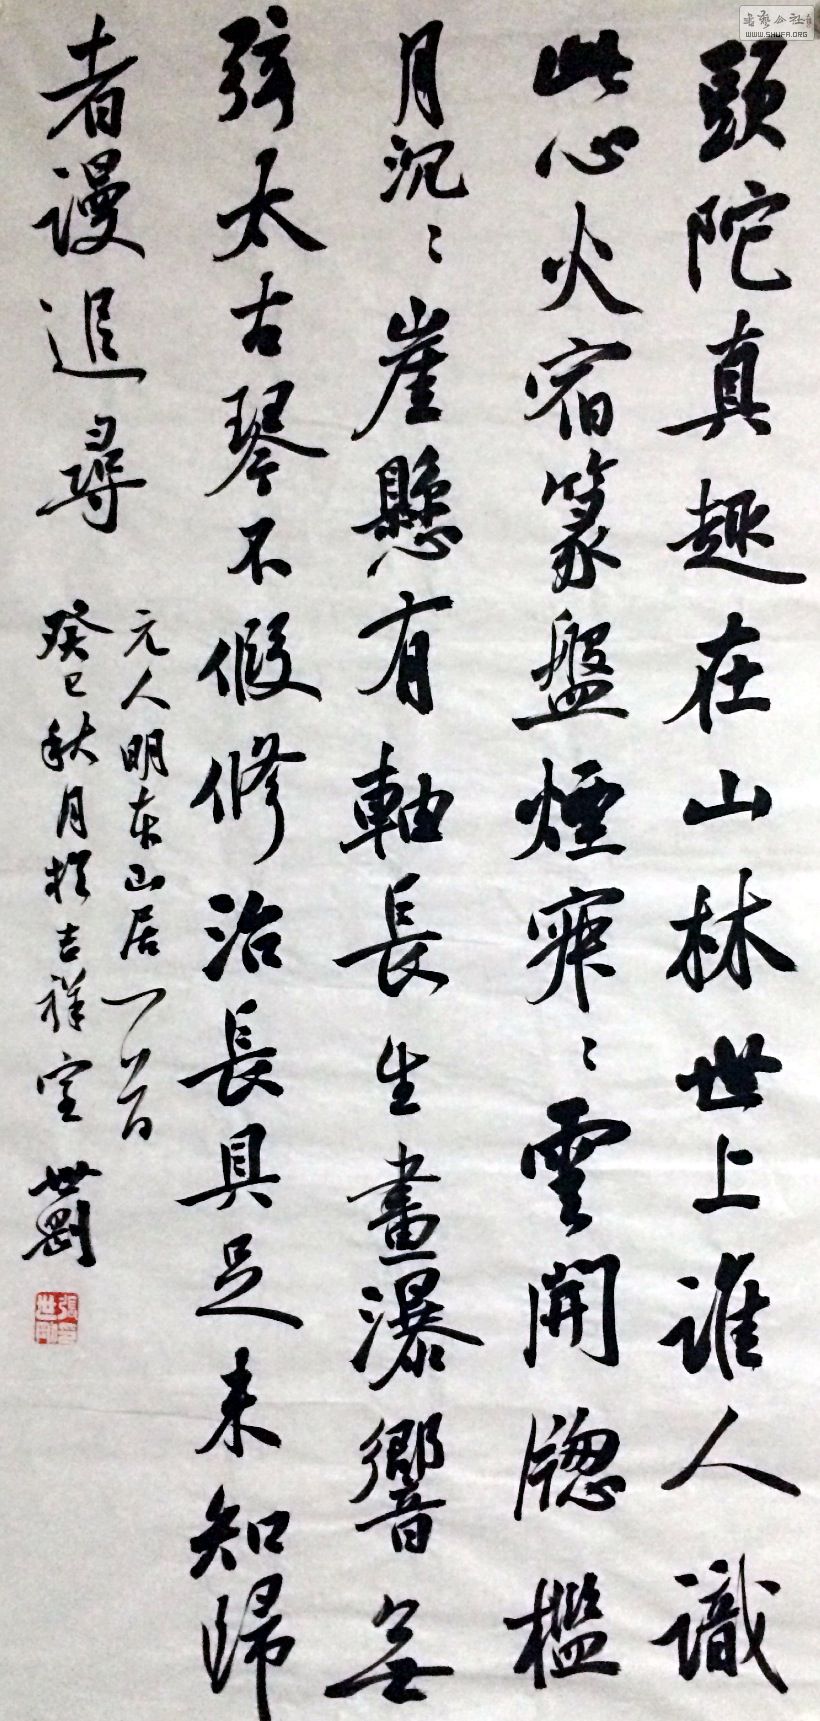 頭陀真趣在山林世上誰人識
此心火宿篆盤煙寂〻雲開牕檻
月沉〻崖懸有軸長生畫瀑響無
弦太古琴不假修治長具足未知歸
者謾追尋
元人明本山居一首
癸巳秋月於吉祥室 世剛
張世剛印
书艺公社
WWW.SHUFA.ORG